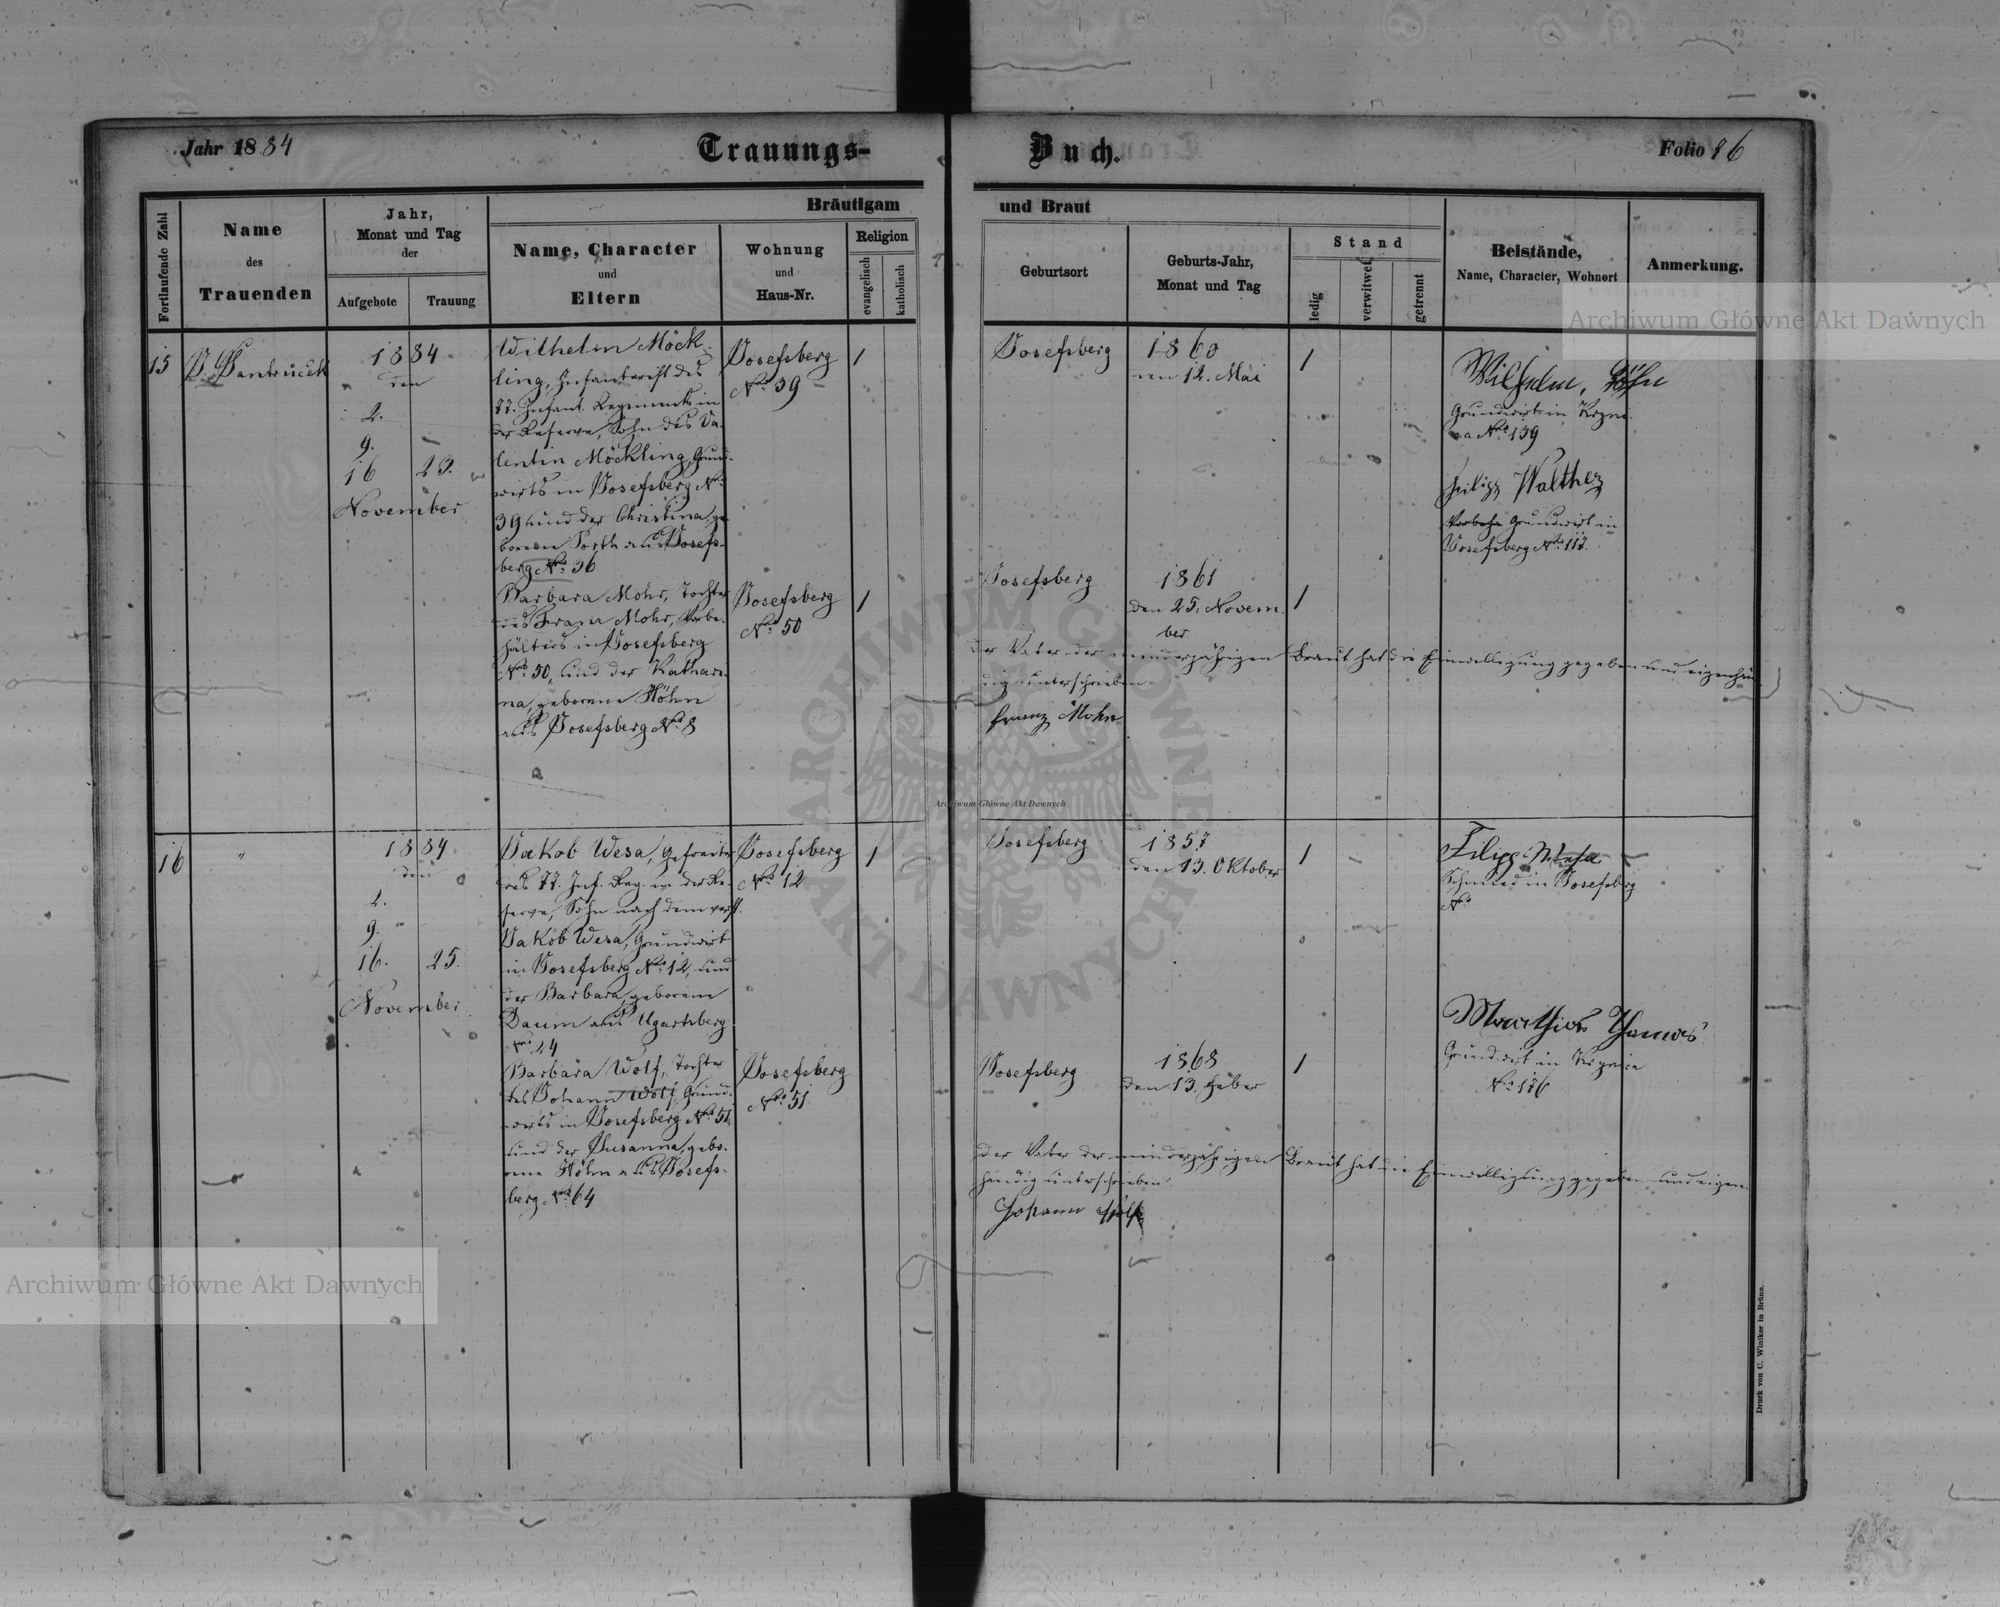 Jahr 1884
Trauungs-
Buch.
Folio 86
Fortlaufende Zahl
Name
des
Trauenden
Jahr,
Monat und Tag
der
Aufgebote
Trauung
Bräutigam
und Braut
Name, Character
und
Eltern
Wohnung
und
Haus-Nr.
Religion
evangelisch
katholisch
Geburtsort
Geburts-Jahr,
Monat und Tag
Stand
ledig
verwitwet
getrennt
Beistände,
Name, Character, Wohnort
Anmerkung.
15
1884
den
2.
9.
16 23.
November
Wilhelm Möck-
ling, Infanterist des
77. Infant. Regiments in
der Reserve, Sohn des Va-
lentin Möckling, Grund-
wirts in Josefsberg No
39 und der Christina, ge-
borenen Porth aus Josefs-
berg No 36
Josefsberg
No 39
1
Josefsberg
1860
den 12. Mai
1
Wilhelm Höhn
Grundwirt in
No 139
Filipp Walther
Grundwirt in
Josefsberg No 117.
Barbara Mohr, Tochter
des Franz Mohr, Vorbe-
hälters in Josefsberg
No 50, und der Kathari-
na, geborene Höhn
aus Josefsberg No 8
Josefsberg
No 50
1
Josefsberg
1861
den 25. Novem-
ber
1
Der Vater der minderjährigen Braut hat die Einwilligung gegeben und eigenhän-
dig unterschrieben
Franz Mohr
16
"
1884
den
2.
9.
16. 25.
November
Jakob Wesa, Gefreiter
des 77. Inf. Reg. in der Re-
serve, Sohn nach dem verst.
Jakob Wesa, Grundwirt
in Josefsberg No 12, und
der Barbara, geborene
Daum aus Ugartsberg
No 24
Josefsberg
No 12
1
Josefsberg
1857
den 13. Oktober
1
Filipp Wesa
Schmied in Josefsberg
No
Barbara Wolf, Tochter
des Johann Wolf, Grund-
wirts in Josefsberg No 51,
und der Susanna, gebo-
rene Höhn aus Josefs-
berg No 64
Josefsberg
No 51
Josefsberg
1868
den 13. Feber
1
Mathias Thomas
Grundwirt in
No 176
Der Vater der minderjährigen Braut hat die Einwilligung gegeben und eigen-
händig unterschrieben.
Johann Wolf
Druck von C. Winiker in Brünn.
Archiwum Główne Akt Dawnych
Archiwum Główne Akt Dawnych
Archiwum Główne Akt Dawnych
ARCHIWUM GŁÓWNE
AKT DAWNYCH